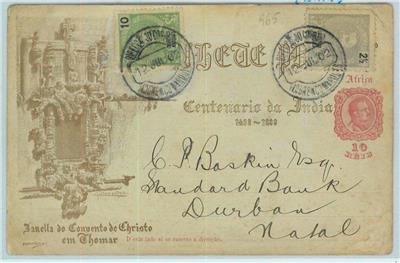 965
10
25
12 JUL 02
12 JUL 02
BILHETE PO
Africa
Centenario da India
1498 ~ 1898
10
REIS
C. P. Baskin Esq.
Standard Bank
Durban
Natal
Janella do Convento de Christo
em Thomar
D'este lado só se escreve a direcção.